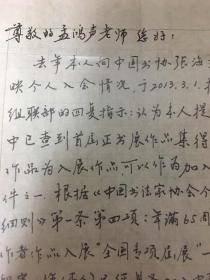 尊敬的孟鸿声老师您好：
去年本人向中国书协张海
映个人入会情况，于2013.3.1.
组联部的回复指示：认为本人提
中已查到首届正书展作品集得
作品为入展作品可以作为加入
件之一。根据《中国书法家协会个
细则》第一条第四项：年满65周
作者作品入展“全国专项正展”一